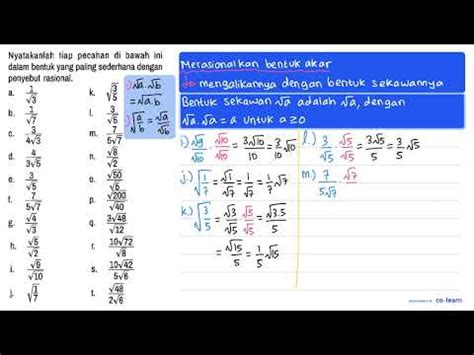 Nyatakanlah tiap pecahan di bawah ini
dalam bentuk yang paling sederhana dengan
penyebut rasional.
a. 1/√3
b. 1/√7
c. 3/(4√3)
d. 4/(3√5)
e. 3/√5
f. 7/(5√7)
g. √4/√3
h. √5/√2
i. √6/√10
j. √(1/7)
k. √(3/5)
l. 3/√5
m. 7/(5√7)
n. √8/√2
o. √50/√6
p. √200/√40
q. 3√48/√12
r. 10√72/√8
s. 10√42/5√6
t. √48/2√6
√a.√b
=√a.b
√(a/b) = √a/√b
Merasionalkan bentuk akar
mengalikannya dengan bentuk sekawannya
Bentuk sekawan √a adalah √a, dengan
√a.√a = a untuk a≥0
√10/√10 = 3√10/10 = 3/10 √10
j.) √(1/7) = √1/√7 = 1/√7 = 1/7 √7
k.) √(3/5) = √3/√5 √5/√5 = √3.5/5
= √15/5 = 1/5 √15
l.) 3/√5 √5/√5 = 3√5/5 = 3/5 √5
m.) 7/(5√7) √7/√7
co-learn